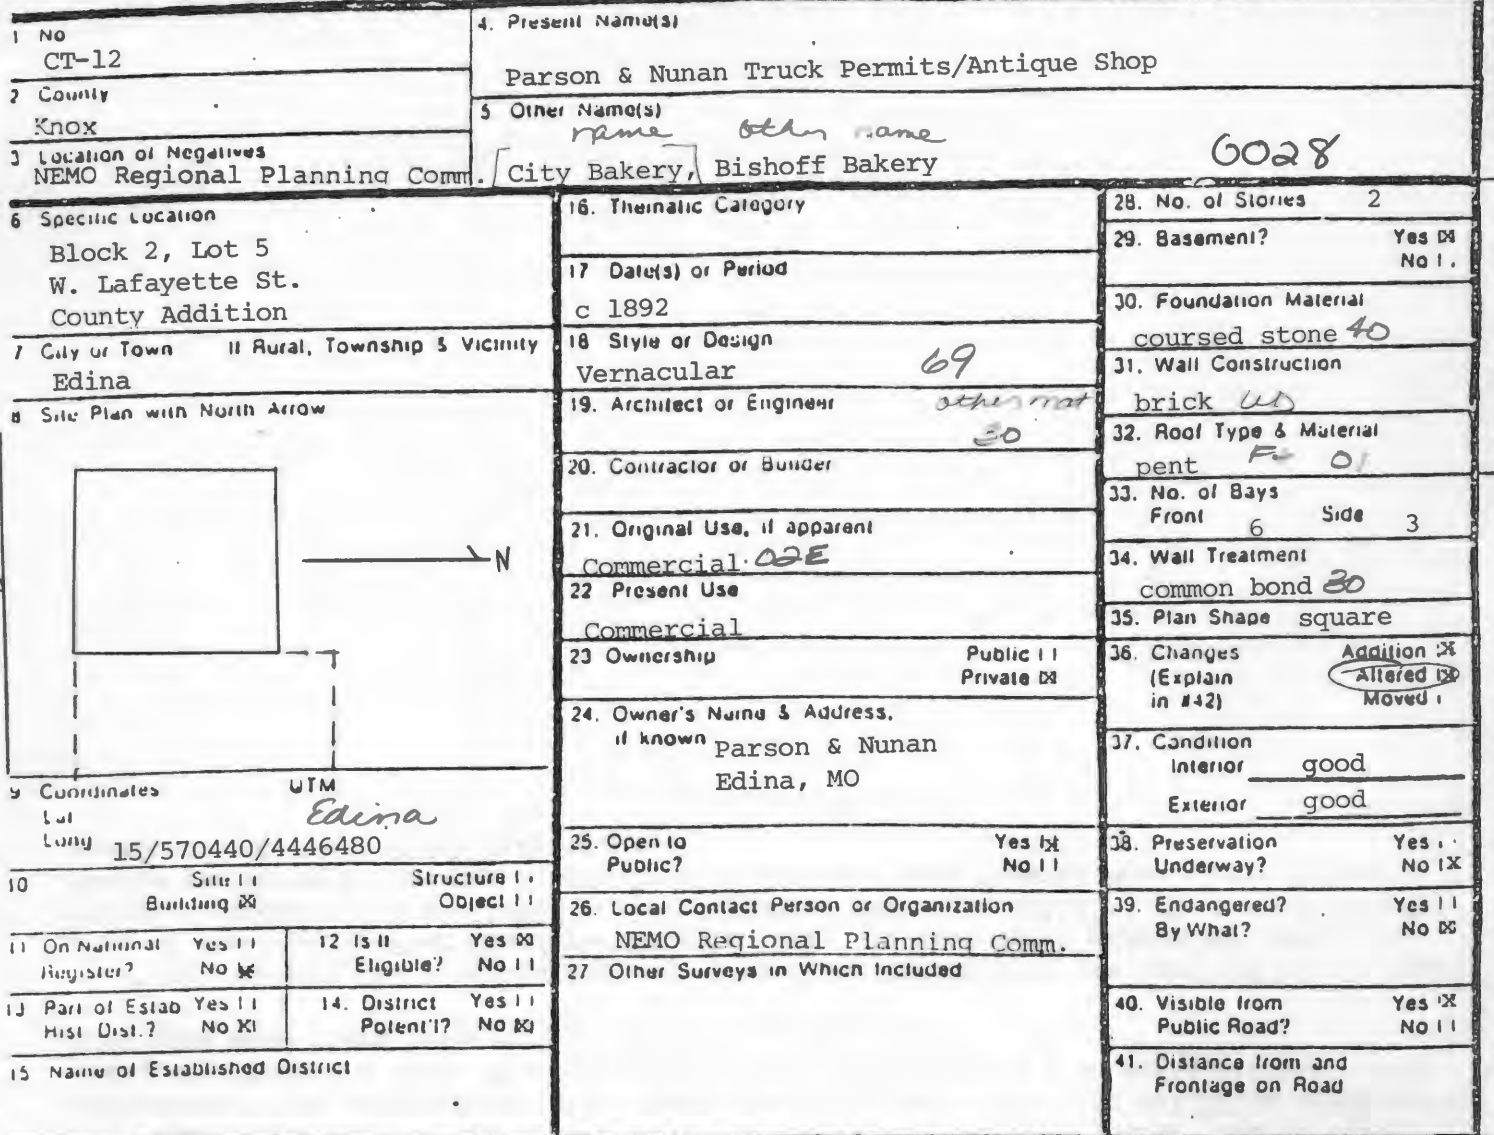 1 No
CT-12
4. Present Name(s)
Parson & Nunan Truck Permits/Antique Shop
2 County
Knox
5 Other Name(s)
name other name
City Bakery, Bishoff Bakery
6028
3 Location of Negatives
NEMO Regional Planning Comm.
6 Specific Location
Block 2, Lot 5
W. Lafayette St.
County Addition
7 City or Town If Rural, Township & Vicinity
Edina
8 Site Plan with North Arrow
N
9 Coordinates UTM
Lat
Long
Edina
15/570440/4446480
10 Site Structure
Building X Object
11 On National Register? Yes No X
12 Is it Eligible? Yes X No
13 Part of Estab Hist Dist.? Yes No X
14. District Potent'l? Yes No X
15 Name of Established District
16. Thematic Category
17 Date(s) or Period
c 1892
18 Style or Design
Vernacular 69
19. Architect or Engineer
other mat
30
20. Contractor or Builder
21. Original Use, if apparent
Commercial 02E
22 Present Use
Commercial
23 Ownership Public
Private X
24. Owner's Name & Address,
if known
Parson & Nunan
Edina, MO
25. Open to Yes X
Public? No
26. Local Contact Person or Organization
NEMO Regional Planning Comm.
27 Other Surveys in Which Included
28. No. of Stories 2
29. Basement? Yes X
No
30. Foundation Material
coursed stone 40
31. Wall Construction
brick
32. Roof Type & Material
pent 01
33. No. of Bays
Front 6 Side 3
34. Wall Treatment
common bond 30
35. Plan Shape square
36. Changes Addition X
(Explain Altered X
in #42) Moved
37. Condition
Interior good
Exterior good
38. Preservation Yes
Underway? No X
39. Endangered? Yes
By What? No X
40. Visible from Yes X
Public Road? No
41. Distance from and
Frontage on Road